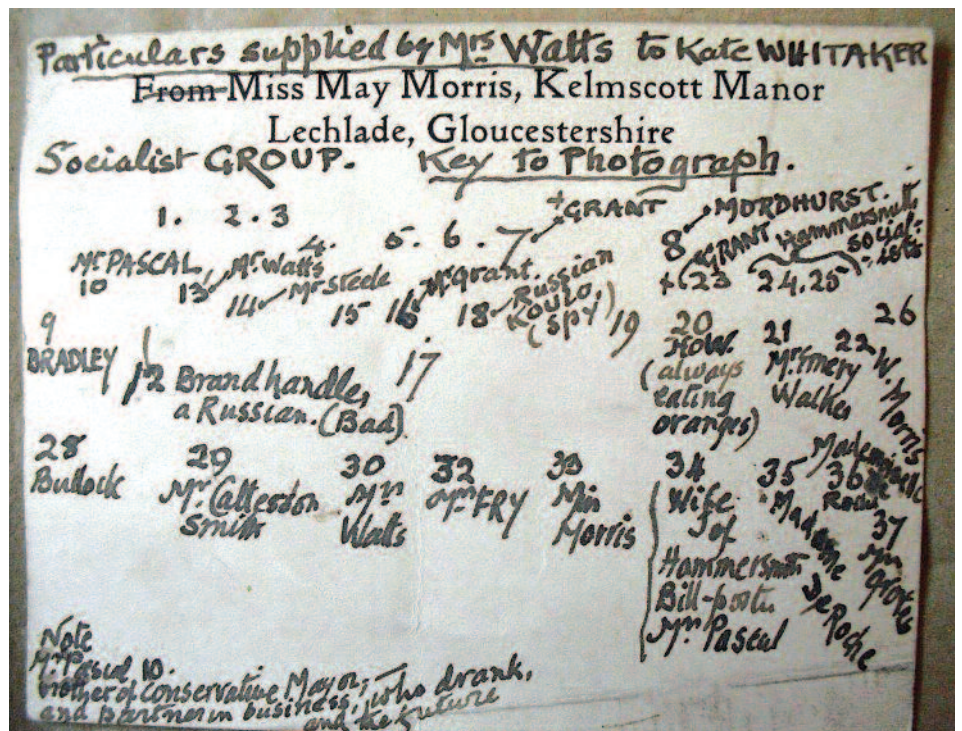 Particulars supplied by Mrs Watts to Kate WHITAKER
From Miss May Morris, Kelmscott Manor
Lechlade, Gloucestershire
Socialist GROUP. Key to Photograph.
1. 2. 3 4. 5. 6. 7 + GRANT 8 MORDHURST.
Mr PASCAL, 10 13 Mr Watts 14 Mr Steele 15 16 Mr Grant. 18 Russian
(Spy) 19 + (GRANT 23 24. 25 Hammersmith Social-ists
9 BRADLEY 12 Brandhandle, a Russian. (Bad) 17
20 How. (always eating oranges) 21 Mr Emery Walker 22 W. Morris 26
28 Bullock 29 Mr Catterson Smith 30 Mrs Watts 32 Mrs FRY 33 Miss Morris
34 Wife of Hammersmith Bill-poster Mrs Pascal 35 Madame de Roche 36 Mademoiselle de Roche 37 Mrs
Note
Mr Pascal 10.
brother of Conservative Mayor,
and partner in business, who drank,
and the future